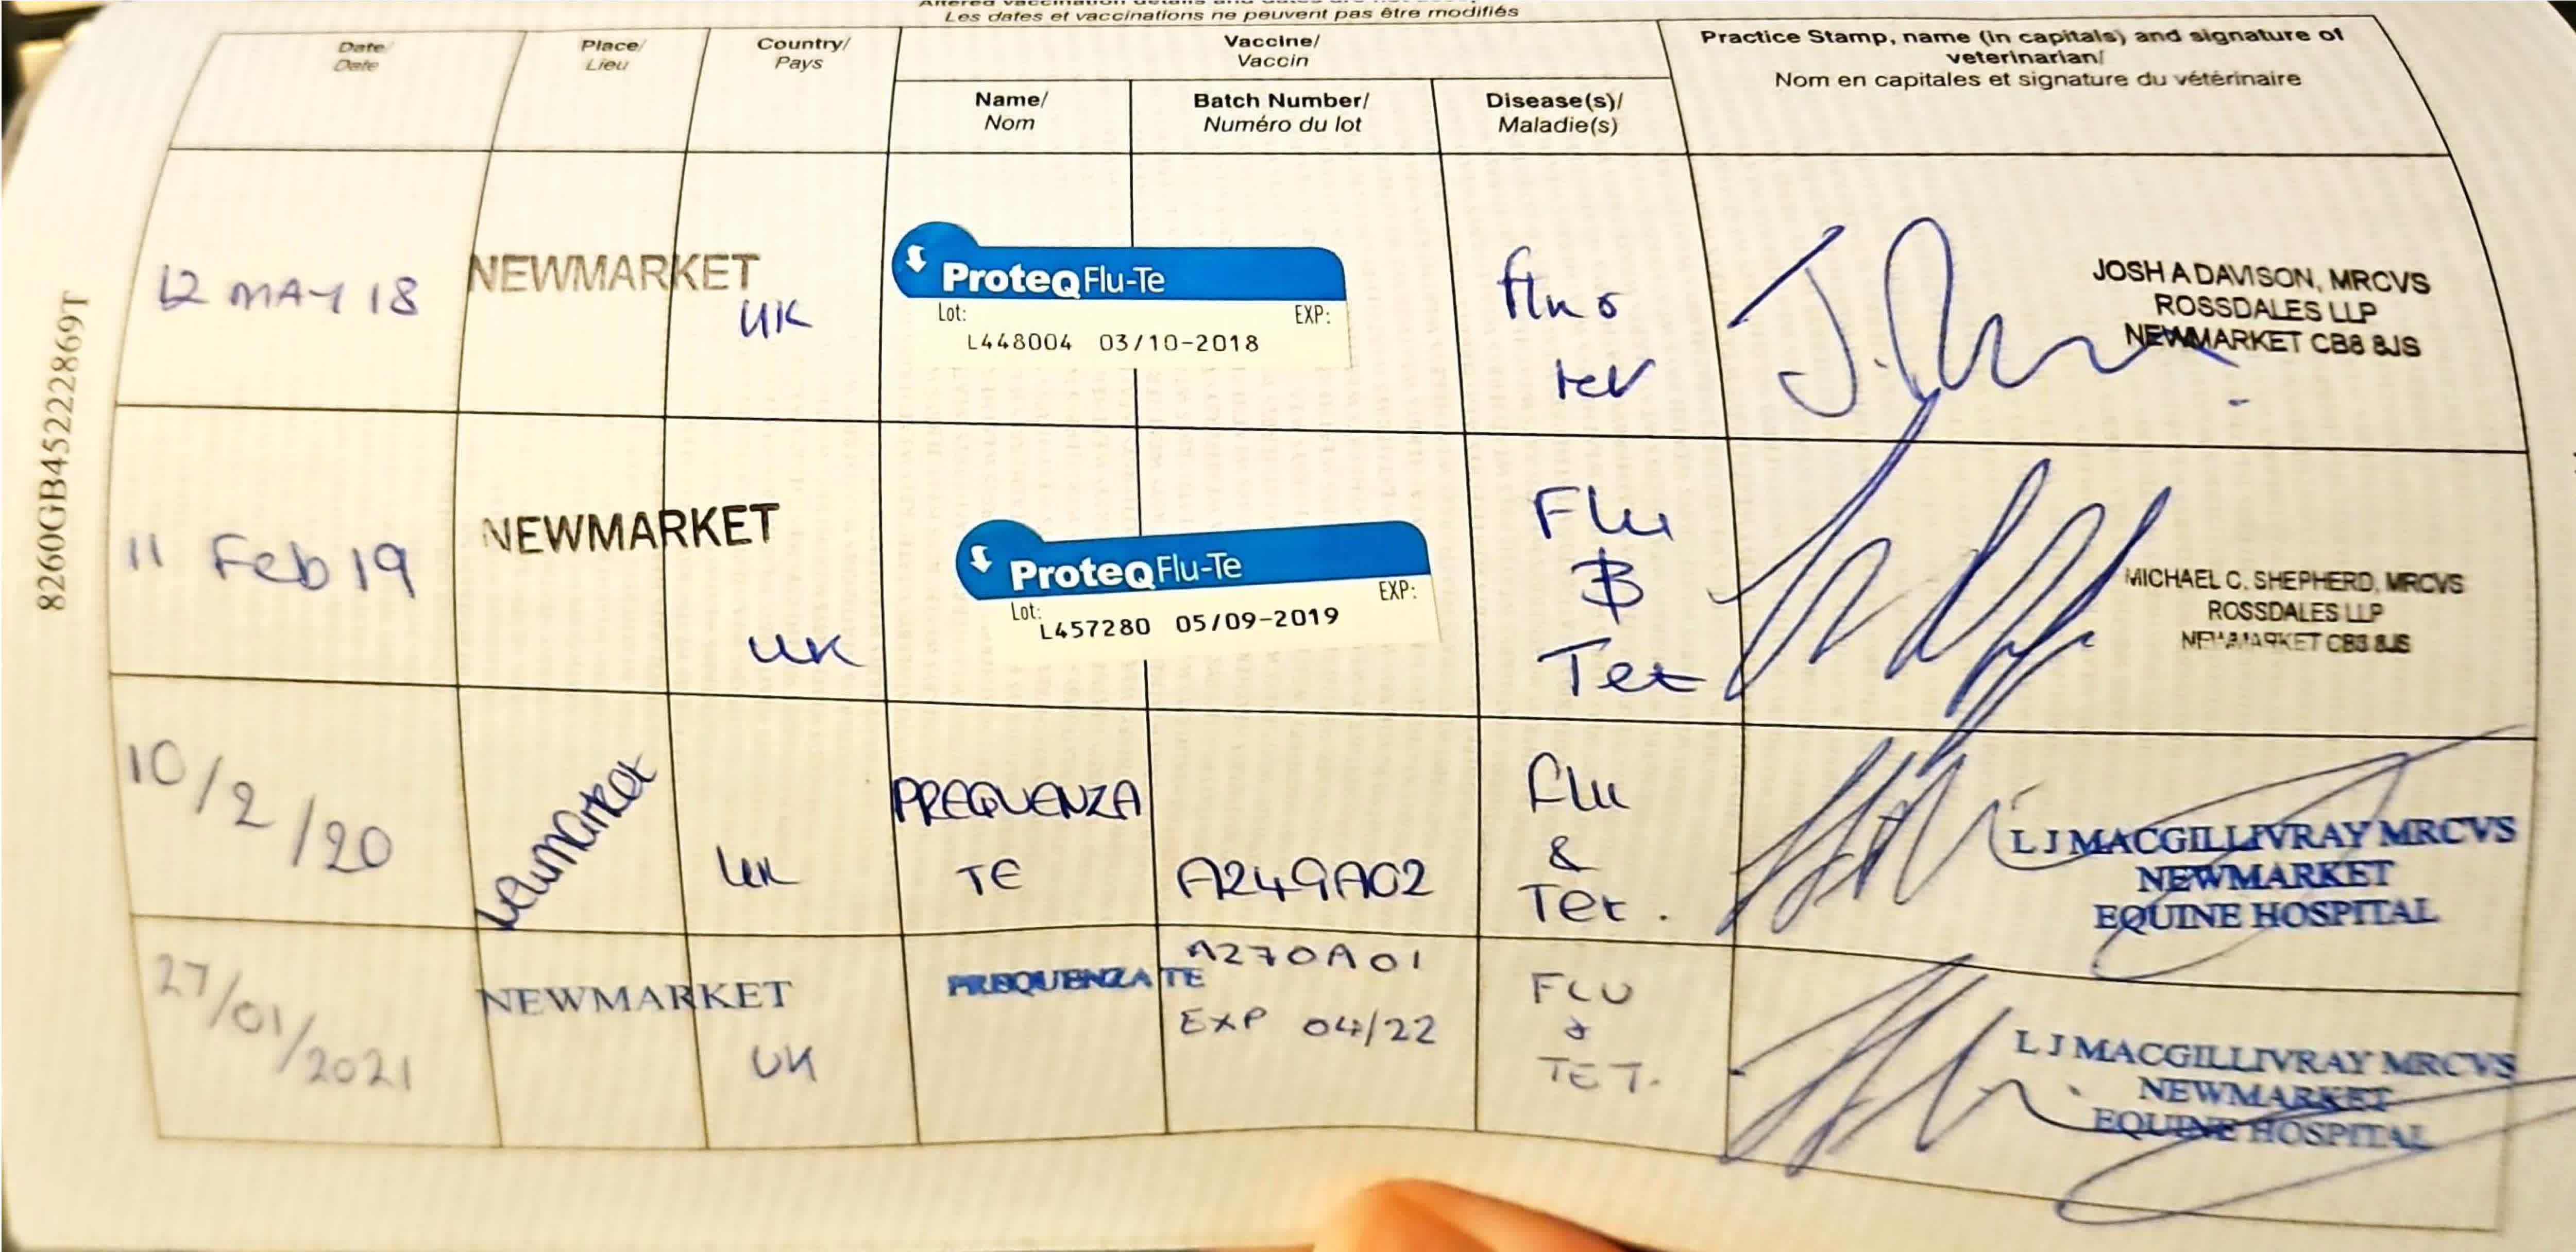 Les dates et vaccinations ne peuvent pas être modifiés
Date/
Date
Place/
Lieu
Country/
Pays
Vaccine/
Vaccin
Name/
Nom
Batch Number/
Numéro du lot
Disease(s)/
Maladie(s)
Practice Stamp, name (in capitals) and signature of
veterinarian/
Nom en capitales et signature du vétérinaire
12 MAY 18
NEWMARKET
UK
ProteqFlu-Te
Lot:
EXP:
L448004 03/10-2018
flu &
tet
JOSH A DAVISON, MRCVS
ROSSDALES LLP
NEWMARKET CB8 8JS
11 Feb 19
NEWMARKET
UK
ProteqFlu-Te
Lot:
EXP:
L457280 05/09-2019
Flu
&
Tet
MICHAEL C. SHEPHERD, MRCVS
ROSSDALES LLP
NEWMARKET CB8 8JS
10/2/20
Newmarket
UK
PREQUENZA
TE
A249A02
Flu
&
Tet.
L J MACGILLIVRAY MRCVS
NEWMARKET
EQUINE HOSPITAL
27/01/2021
NEWMARKET
UK
PREQUENZA TE
A270A01
EXP 04/22
FLU
&
TET.
L J MACGILLIVRAY MRCVS
NEWMARKET
EQUINE HOSPITAL
8260GB45222869T